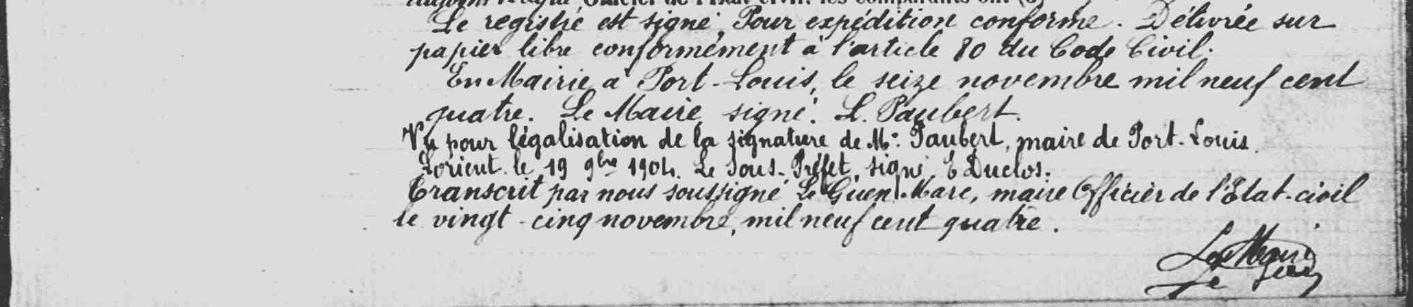 Officier de l'Etat civil, les comparants ont (6)
Le registre est signé, Pour expédition conforme. Délivrée sur
papier libre conformément à l'article 80 du Code Civil.
En Mairie à Port-Louis, le seize novembre mil neuf cent
quatre. Le Maire signé: L. Paubert.
Vu pour légalisation de la signature de Mr. Paubert, maire de Port-Louis.
Lorient le 19 9bre 1904. Le Sous-Préfet, signé, E Duclos.
Transcrit par nous soussigné Le Guen Marc, maire Officier de l'Etat-civil
le vingt-cinq novembre, mil neuf cent quatre.
Le Maire